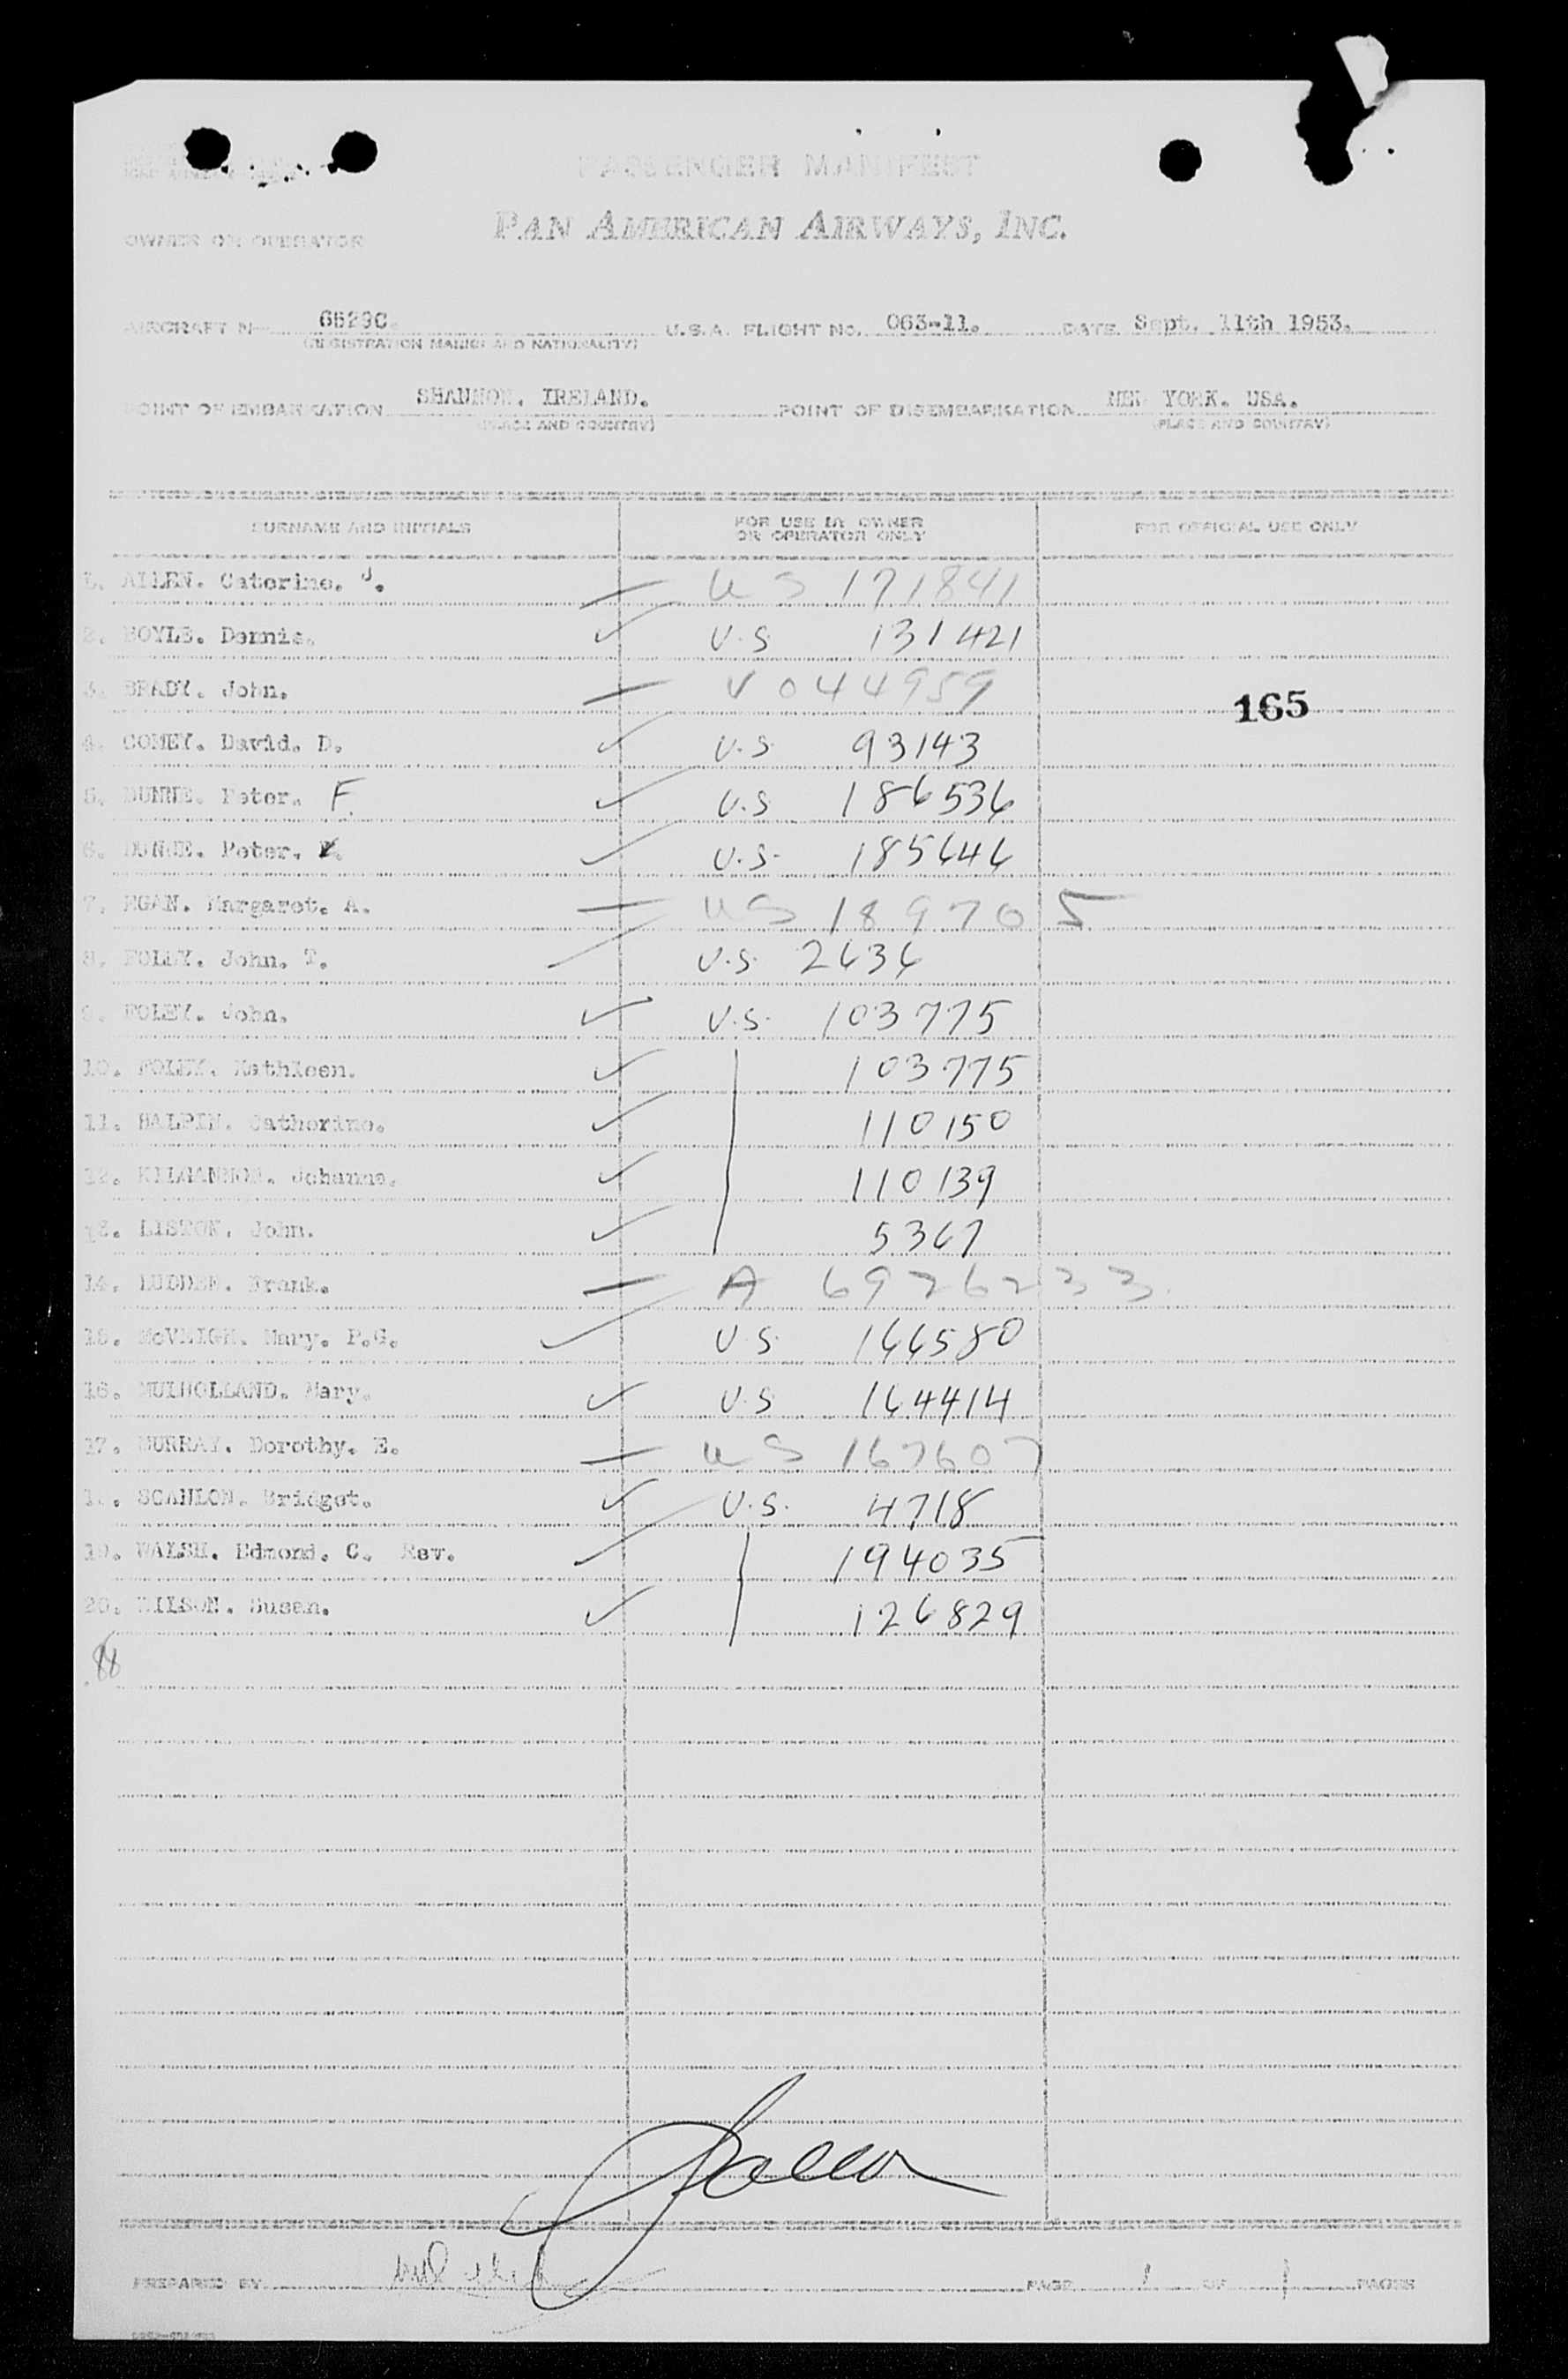 PASSENGER MANIFEST
PAN AMERICAN AIRWAYS, INC.
OWNER OR OPERATOR
AIRCRAFT N- 6529C. U.S.A. FLIGHT No. 063-11. DATE Sept. 11th 1953.
(REGISTRATION MARKS AND NATIONALITY)
POINT OF EMBARKATION SHANNON. IRELAND. POINT OF DISEMBARKATION NEW YORK. USA.
(PLACE AND COUNTRY) (PLACE AND COUNTRY)
SURNAME AND INITIALS FOR USE BY OWNER OR OPERATOR ONLY FOR OFFICIAL USE ONLY
1. ALLEN. Caterine. J. — US 171841
2. BOYLE. Dennis. ✓ U.S 131421
3. BRADY. John. — V 044959
165
4. COMEY. David. D. ✓ U.S. 93143
5. DUNNE. Peter. F. ✓ U.S 186536
6. DUNNE. Peter. ✓ U.S. 185646
7. EGAN. Margaret. A. — US 189705
8. FOLEY. John. T. U.S. 2636
9. FOLEY. John. ✓ U.S. 103775
10. FOLEY. Kathleen. ✓ 103775
11. HALPIN. Catherine. ✓ 110150
12. KILGANNON. Johanna. ✓ 110139
13. LISTON. John. ✓ 5367
14. LUDDEN. Frank. — A 6926233
15. McVEIGH. Mary. P.G. ✓ U.S. 166580
16. MULHOLLAND. Mary. ✓ U.S 164414
17. MURRAY. Dorothy. E. — US 167607
18. SCANLON. Bridget. ✓ U.S. 4718
19. WALSH. Edmond. C. Rev. ✓ 194035
20. WILSON. Susan. ✓ 126829
PREPARED BY PAGE 1 OF 1 PAGES